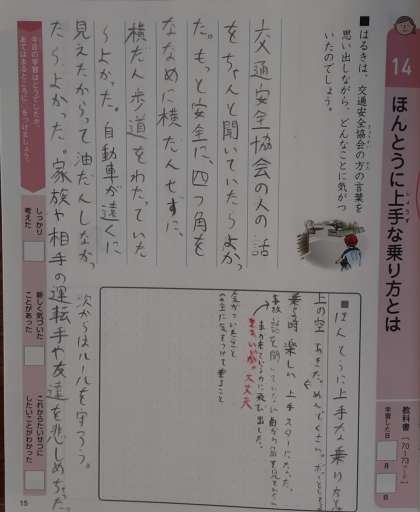 14
ほんとうに上手な乗り方とは
教科書
70~73ページ
学習した日
月
日
■はるきは、交通安全協会の方の言葉を
思い出しながら、どんなことに気がつ
いたのでしょう。
交通安全協会の人の話
をちゃんと聞いていたらよかっ
た。もっと安全に、四つ角を
ななめに横だんせずに、
横だん歩道をわたっていた
らよかった。自動車が遠くに
見えたからって油だんしなかっ
たらよかった。家族や相手の運転手や友達を悲しめちゃった。
次からはルールを守ろう。
■ほんとうに上手な乗り方とは
上の空 あきた。めんどくさい。
乗る時 楽しい 上手 スターになった。
事故 話を聞いていない
車が来ているのに飛び出した。
大丈夫
安全に気をつけて乗ること
今日の学習はどうでしたか。
あてはまるところに○をつけましょう。
しっかり
考えた
新しく気づいた
ことがあった
これからたいせつに
したいことがわかった
15